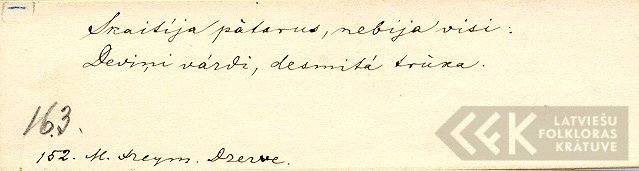 Skaitīja pātarus, nebija visi:
Deviņi vārdi, desmitā trūka.
163.
152. M. Dreym. Dzerve.
LATVIEŠU
FOLKLORAS
KRĀTUVE